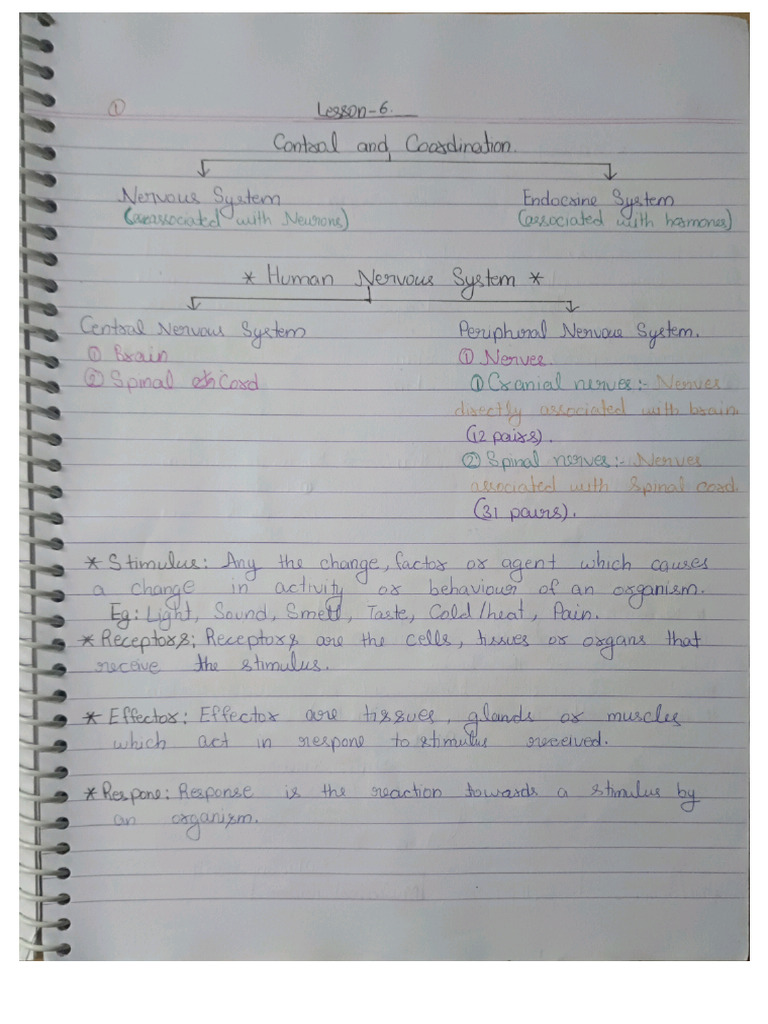 ①
Lesson-6.
Control and Coordination.
Nervous System Endocrine System
(associated with Neurons) (associated with hormones)
* Human Nervous System *
Central Nervous System Peripheral Nervous System.
① Brain ① Nerves
② Spinal Cord ① Cranial nerves:- Nerves
directly associated with brain.
(12 pairs).
② Spinal nerves:- Nerves
associated with Spinal cord.
(31 pairs).
* Stimulus: Any the change, factor or agent which causes
a change in activity or behaviour of an organism.
Eg: Light, Sound, Smell, Taste, Cold/heat, Pain.
* Receptors; Receptors are the cells, tissues or organs that
receive the stimulus.
* Effector: Effector are tissues, glands or muscles
which act in respone to stimulus received.
* Respone: Response is the reaction towards a stimulus by
an organism.